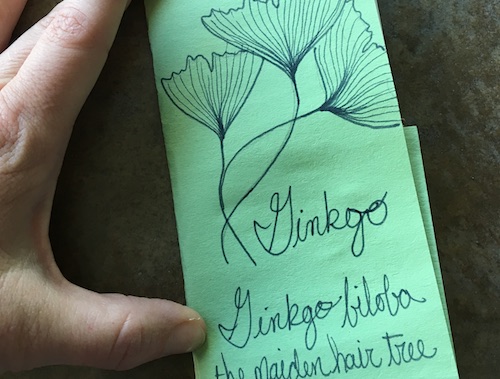 Ginkgo
Ginkgo biloba
the maiden hair tree